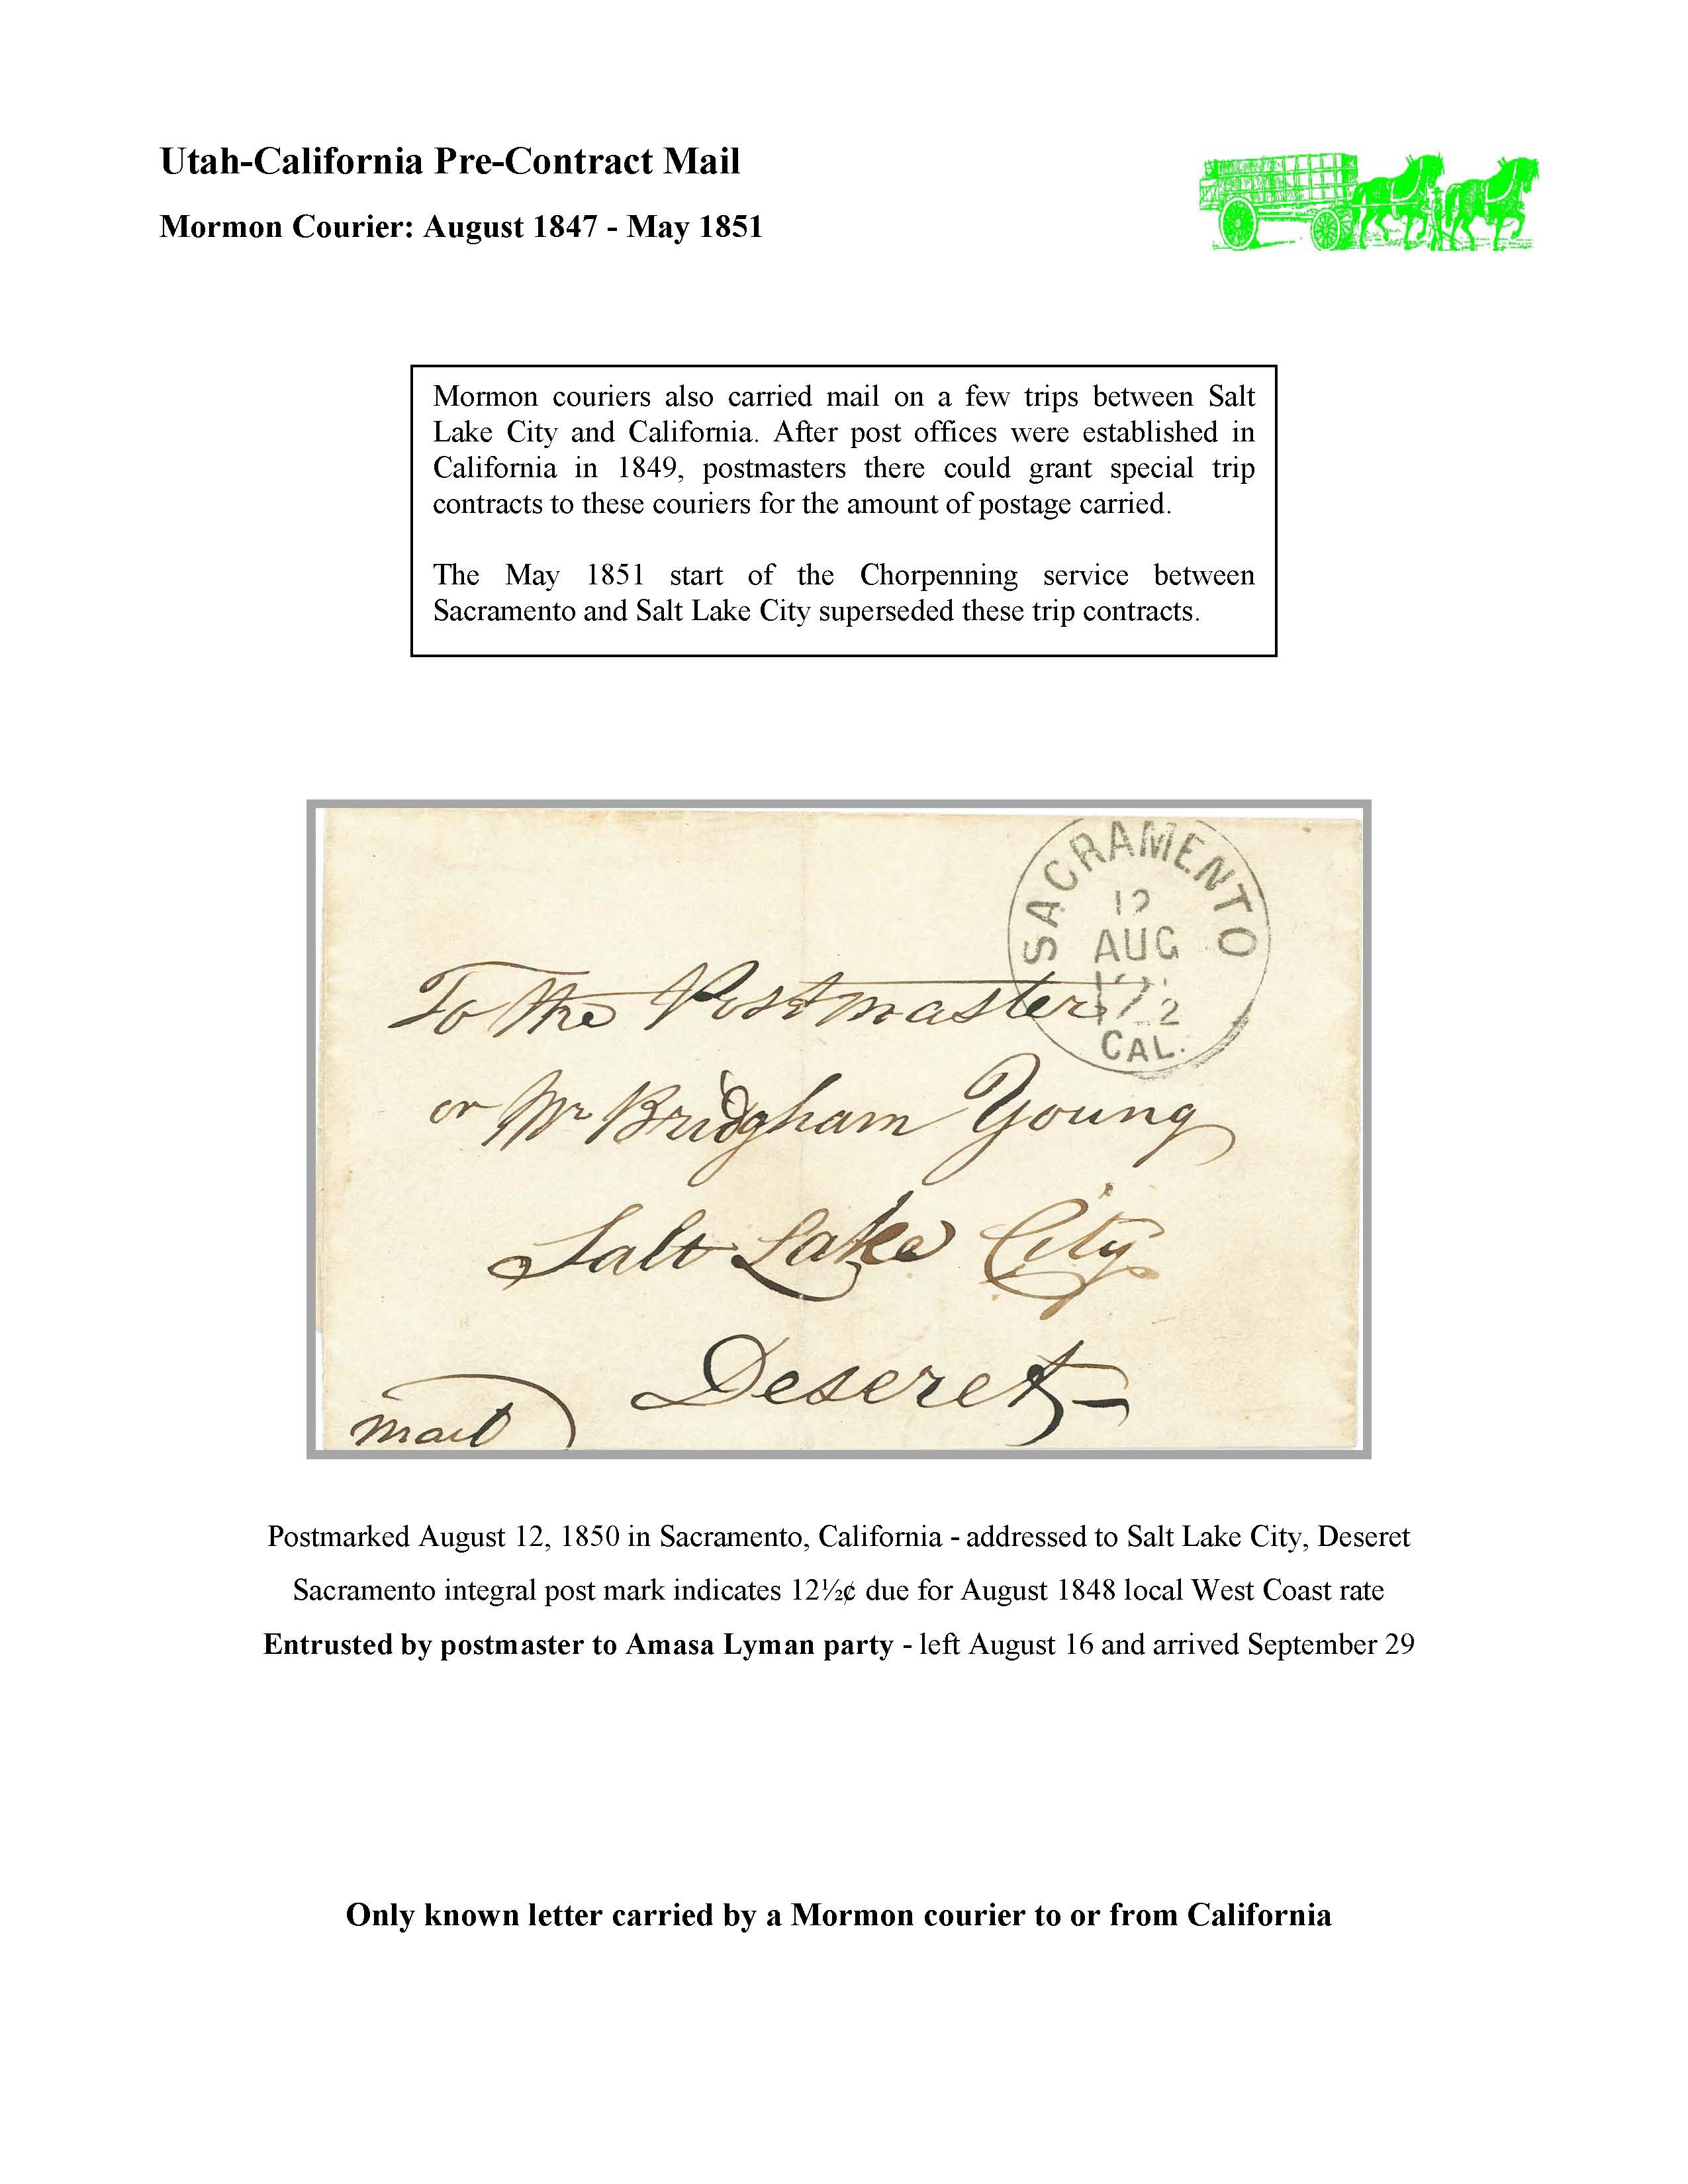 Utah-California Pre-Contract Mail
Mormon Courier: August 1847 - May 1851
Mormon couriers also carried mail on a few trips between Salt
Lake City and California. After post offices were established in
California in 1849, postmasters there could grant special trip
contracts to these couriers for the amount of postage carried.
The May 1851 start of the Chorpenning service between
Sacramento and Salt Lake City superseded these trip contracts.
SACRAMENTO
12
AUG
CAL.
To the Postmaster
or Mr Bridgham Young
Salt Lake City
Deseret
mail
Postmarked August 12, 1850 in Sacramento, California - addressed to Salt Lake City, Deseret
Sacramento integral post mark indicates 12½¢ due for August 1848 local West Coast rate
Entrusted by postmaster to Amasa Lyman party - left August 16 and arrived September 29
Only known letter carried by a Mormon courier to or from California